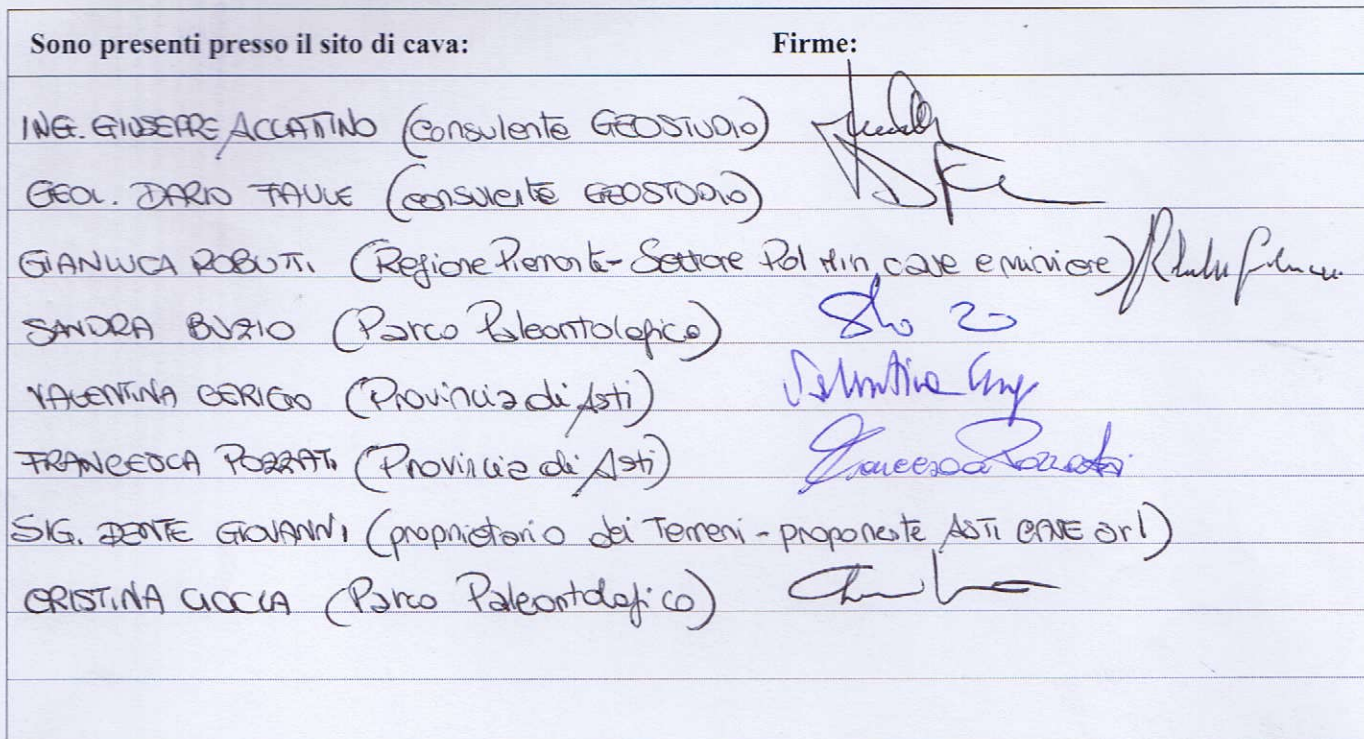 Sono presenti presso il sito di cava: Firme:
ING. GIUSEPPE ACCATTINO (consulente GEOSTUDIO)
GEOL. DARIO FAULE (consulente GEOSTUDIO)
GIANLUCA ROBUTTI (Regione Piemonte - Settore Pol Min, cave e miniere)
SANDRA BUZIO (Parco Paleontologico)
VALENTINA CERIGO (Provincia di Asti)
FRANCESCA POZZATI (Provincia di Asti) Francesca Pozzati
SIG. DENTE GIOVANNI (proprietario dei Terreni - proponente ASTI CAVE srl)
CRISTINA CIOCCA (Parco Paleontologico)